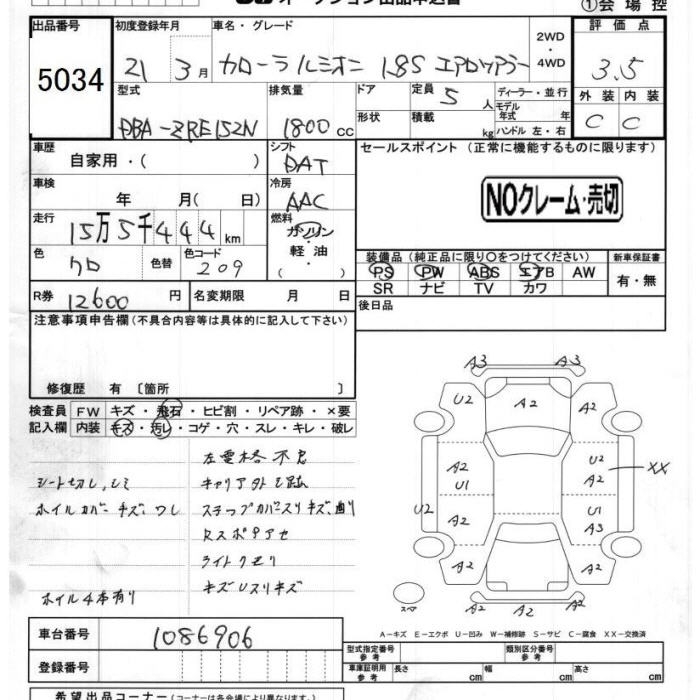 オークション出品申込書
①会場控
出品番号 初度登録年月 車名・グレード 2WD・4WD 評価点
5034 21年 3月 カローラルミオン 1.8S エアロツアラー 3.5
型式 排気量 ドア 定員 5人 ディーラー・並行 外装 内装
DBA-ZRE152N 1800cc 形状 積載 kg モデル年式 年 ハンドル 左・右 C C
車歴 自家用・( ) シフト DAT セールスポイント (正常に機能するものに限ります)
車検 年 月( 日) 冷房 AAC
NOクレーム・売切
走行 15万5千444km 燃料 ガソリン・軽油・( )
色 クロ 色替 色コード 209
装備品(純正品に限り○をつけてください) 新車保証書
PS PW ABS エアB AW 有・無
SR ナビ TV カワ
R券 12600円 名変期限 月 日 後日品
注意事項申告欄(不具合内容等は具体的に記入して下さい)
修復歴 有 〔箇所 〕
検査員 FW キズ・飛石・ヒビ割・リペア跡・×要
記入欄 内装 キズ・汚レ・コゲ・穴・スレ・キレ・破レ
シート切レ、シミ
ホイルカバーキズ、ワレ
ホイル4本有り
左電格不良
キャリア外し跡
ライトクモリ
A3 A3
U2 A2 A2
A2 U1 U2 A2 XX
U2 A2 U1 A3
A2 A2
A2 A2 A2
スペア
A-キズ E-エクボ U-凹み W-補修跡 S-サビ C-腐食 XX-交換済
車台番号 1086906
登録番号
型式指定番号 参考 類別区分番号 参考
車庫証明用 参考 長さ cm 幅 cm 高さ cm
希望出品コーナー(コーナーは各会場により異なります)